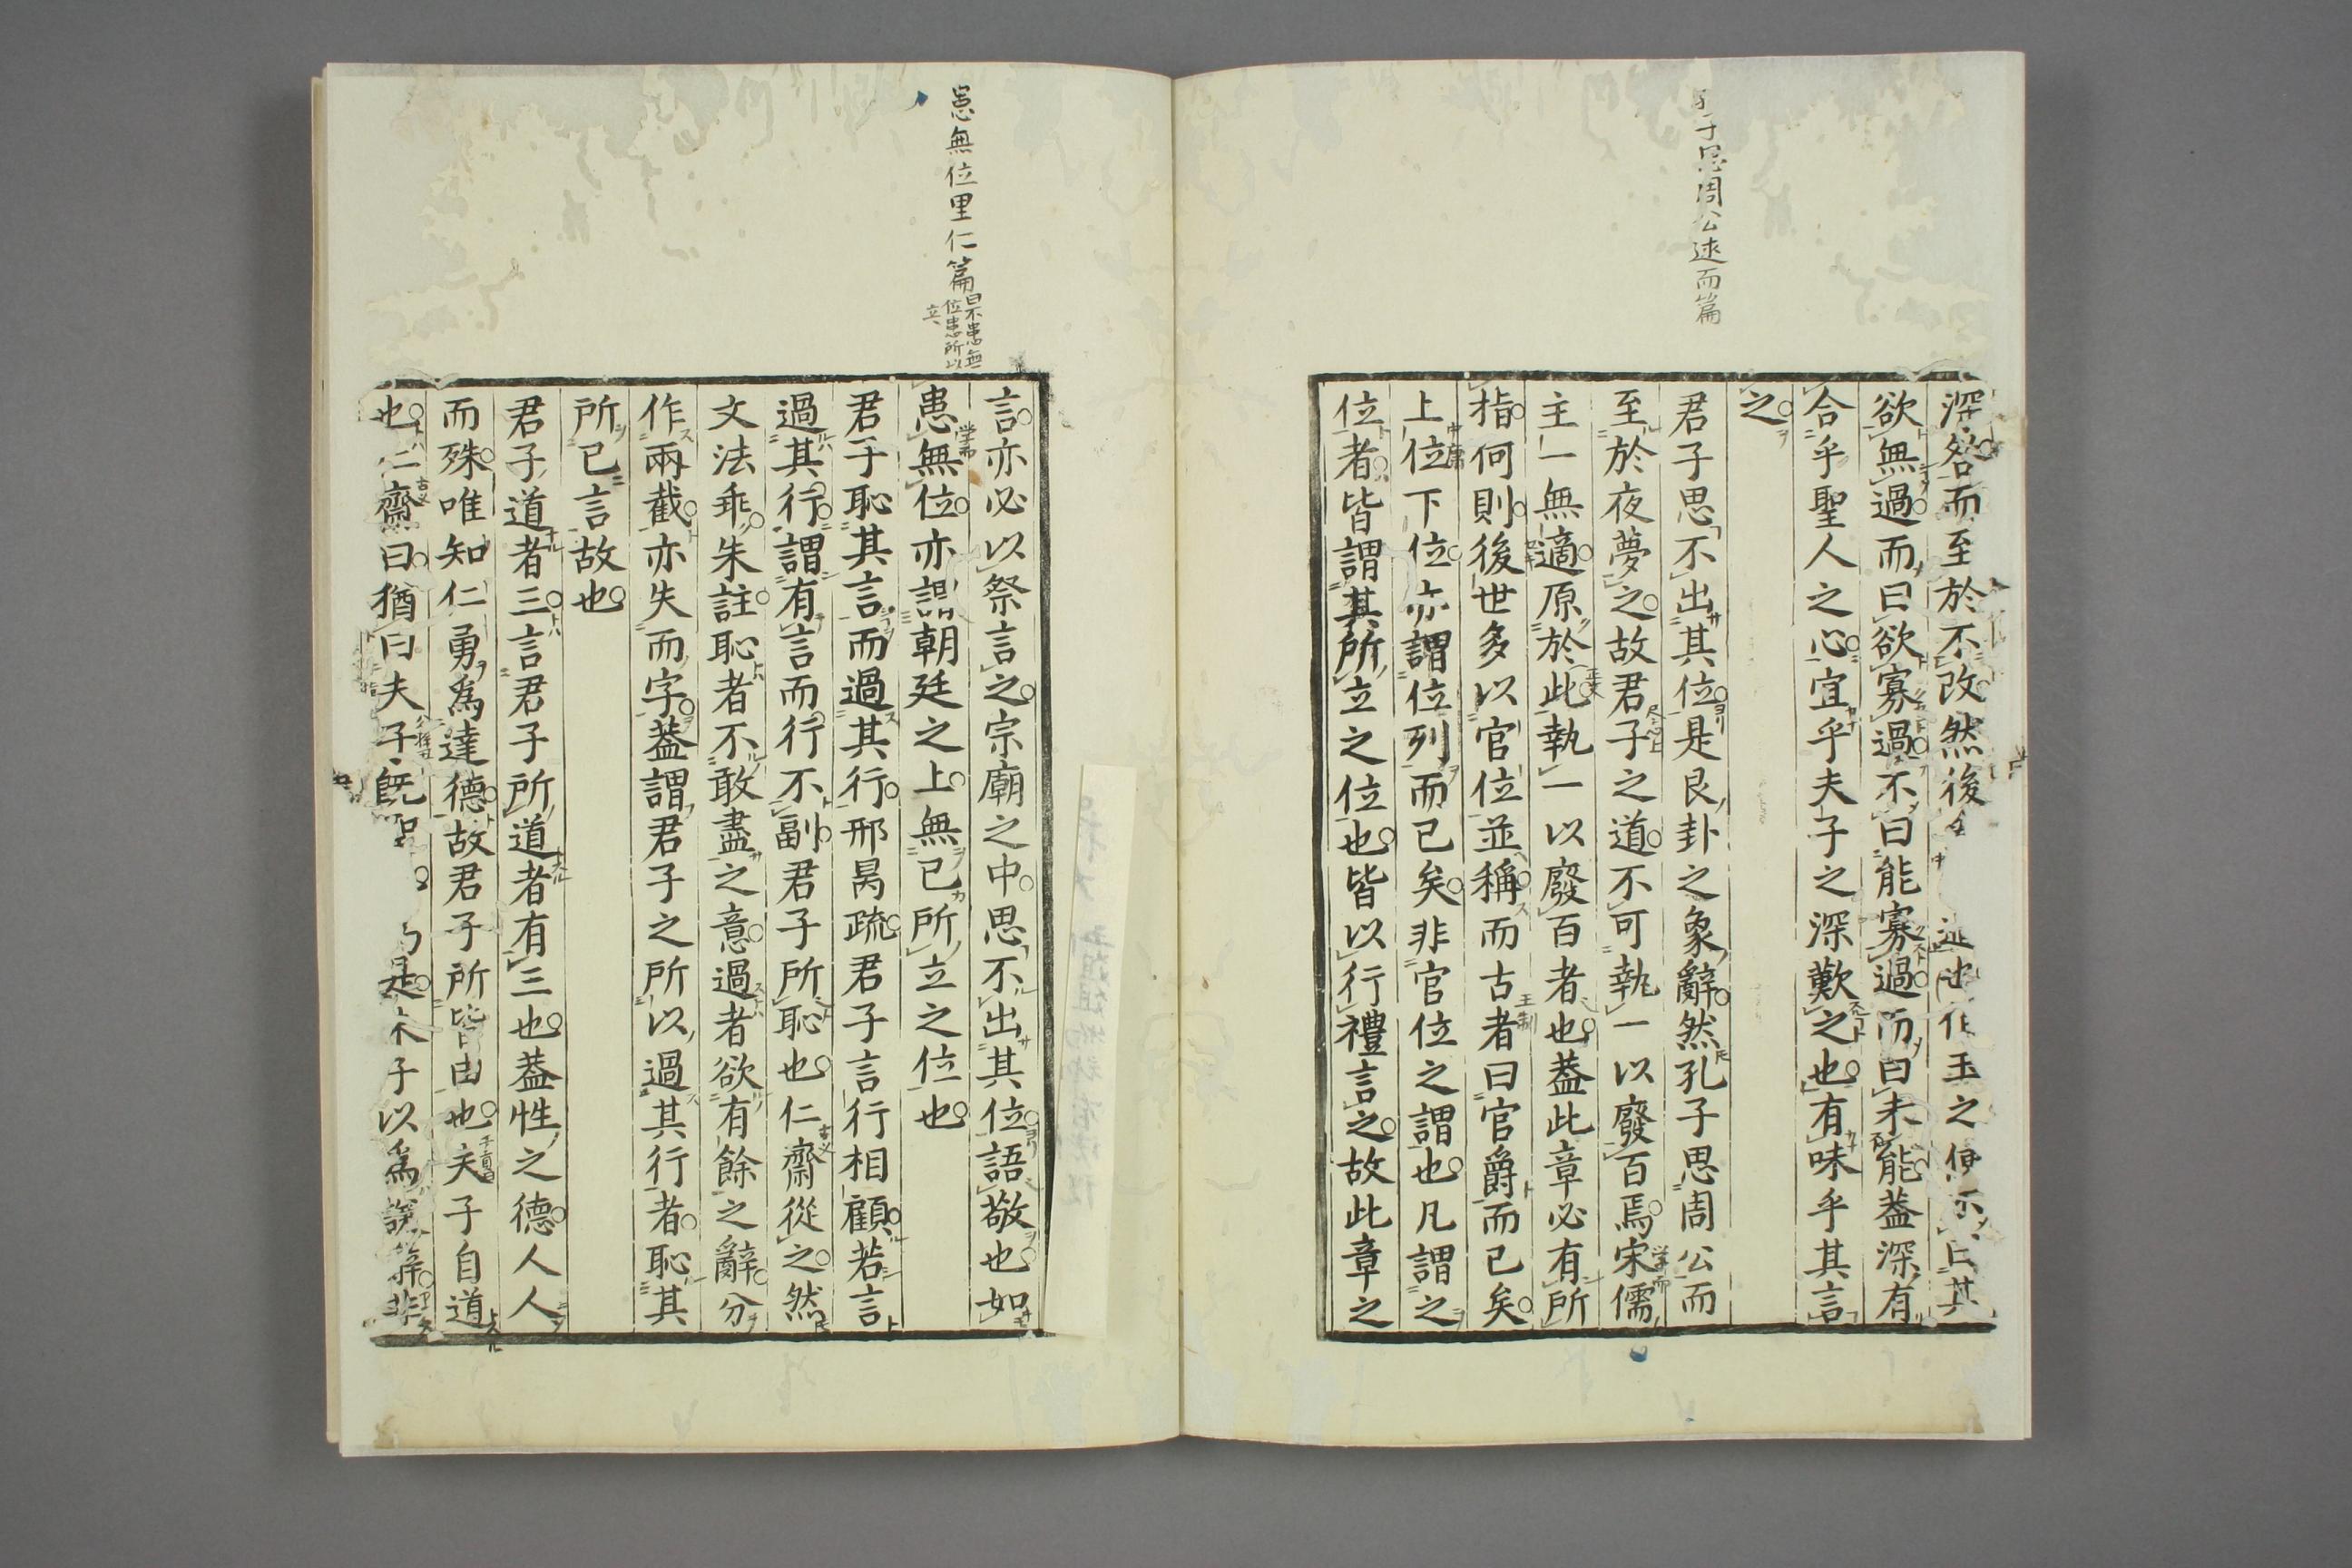 孔子思周公述而篇
深咎而至於不改然後
迹也伯玉之使亦曰其
欲無過而曰欲寡過不曰能寡過而曰未能蓋深有
合乎聖人之心宜乎夫子之深歎之也有味乎其言
之
君子思不出其位是艮卦之象辭然孔子思周公而
至於夜夢之故君子之道不可執一以廢百焉宋儒
主一無適原於此執一以廢百者也蓋此章必有所
指何則後世多以官位並稱而古者曰官爵而已矣
上位下位亦謂位列而已矣非官位之謂也凡謂之
位者皆謂其所立之位也皆以行禮言之故此章之
患無位里仁篇
曰不患無
位患所以
立
言亦必以祭言之宗廟之中思不出其位語敬也如
患無位亦謂朝廷之上無己所立之位也
君子恥其言而過其行邢昺疏君子言行相顧若言
過其行謂有言而行不副君子所恥也仁齋從之然
文法乖朱註恥者不敢盡之意過者欲有餘之辭分
作兩截亦失而字蓋謂君子之所以過其行者恥其
所已言故也
君子道者三言君子所道者有三也蓋性之德人人
而殊唯知仁勇爲達德故君子所皆由也夫子自道
也仁齋曰猶曰夫子既聖
是朱子以爲謙辭非